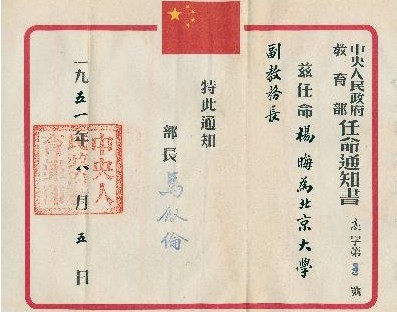 中央人民政府
教育部
任命通知書
字第 號
茲任命楊晦為北京大學
副教務長
特此通知
部長 馬叙倫
一九五一年八月五日
中央人
民政府